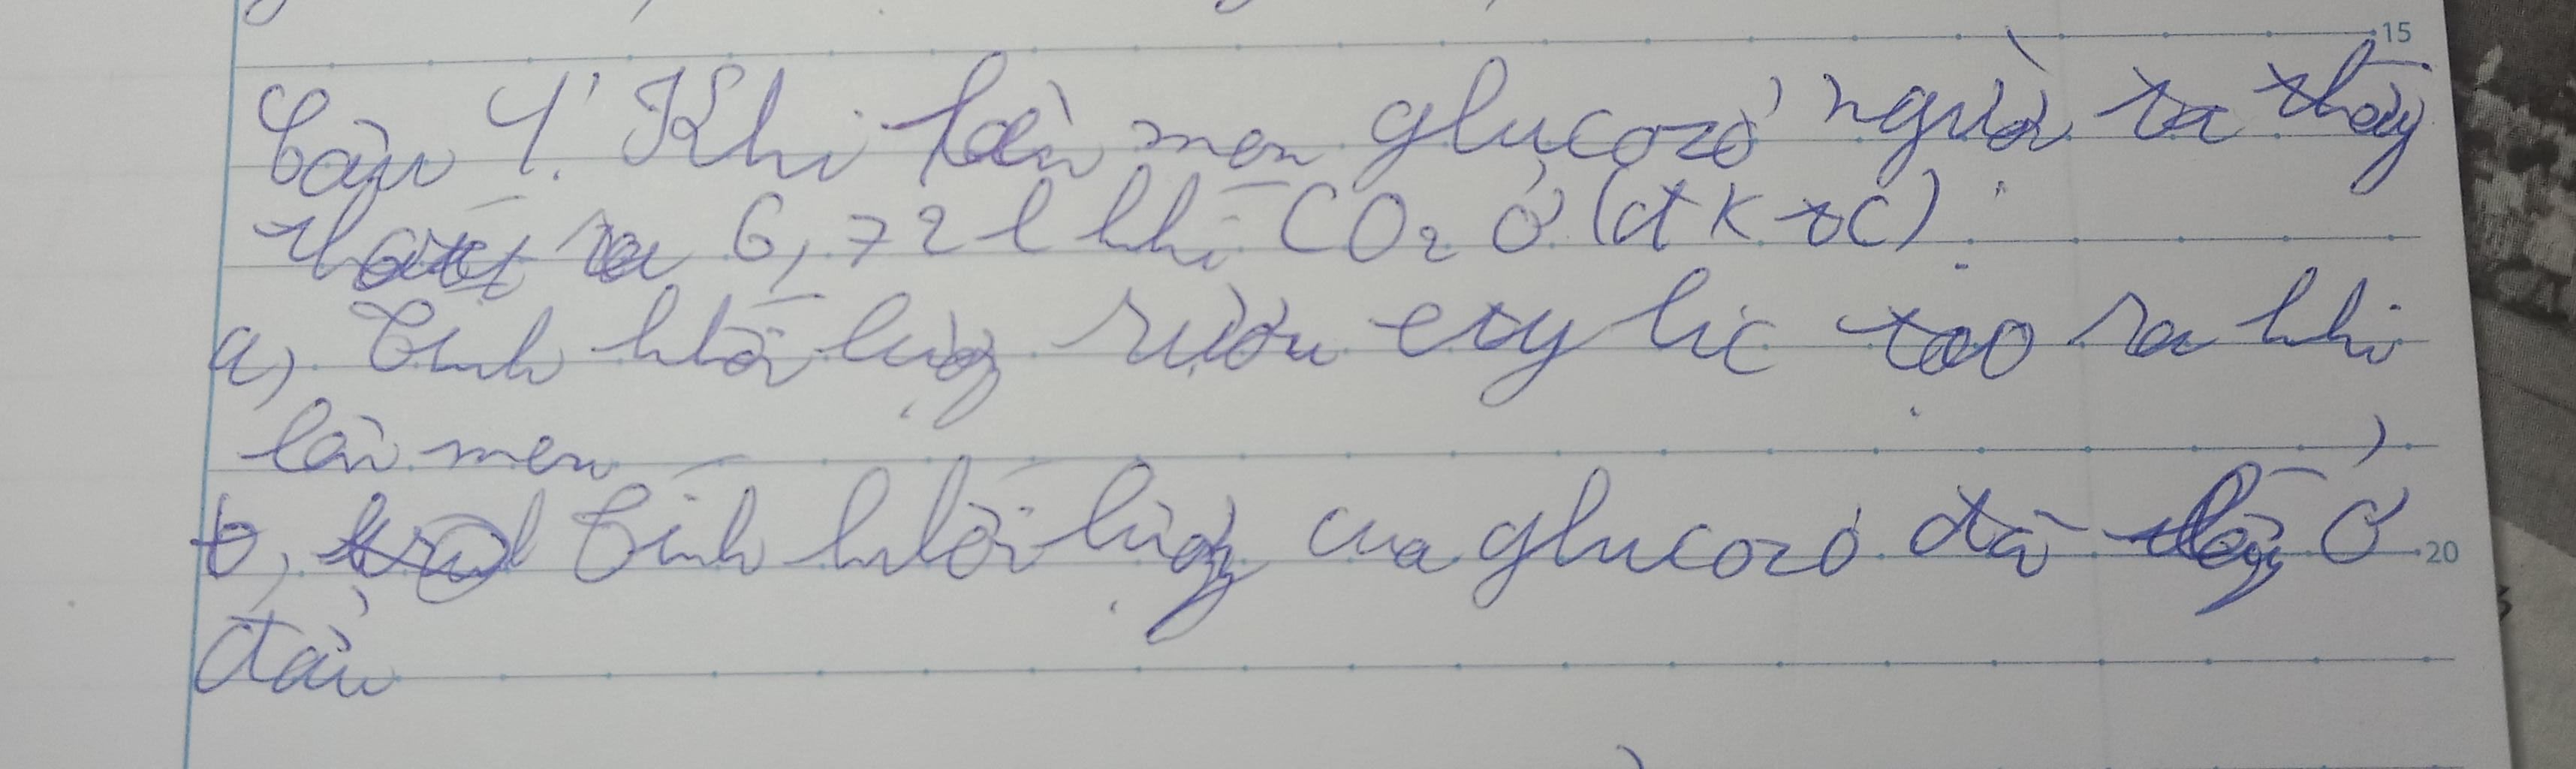 Câu 4: Khi lên men glucozơ người ta thấy
thoát ra 6,72 l khí CO2 ở (đktc)
a, Tính khối lượng rượu etylic tạo ra khi
lên men
b, Tính khối lượng của glucozơ đã lấy ở
đầu
15
20